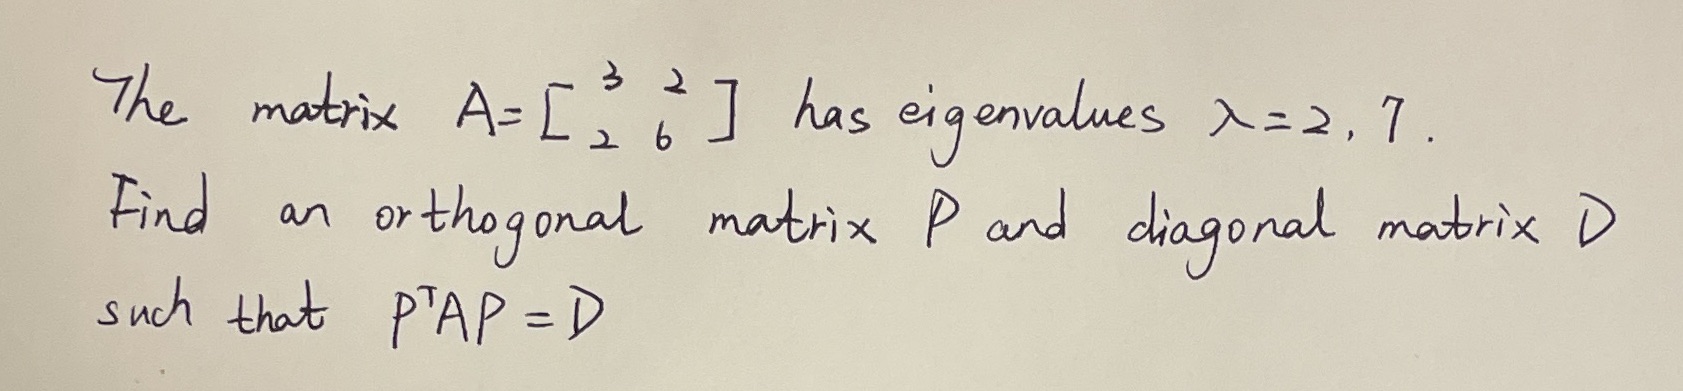 The matrix A=[3 2 2 6] has eigenvalues λ=2, 7.
Find an orthogonal matrix P and diagonal matrix D
such that PᵀAP=D